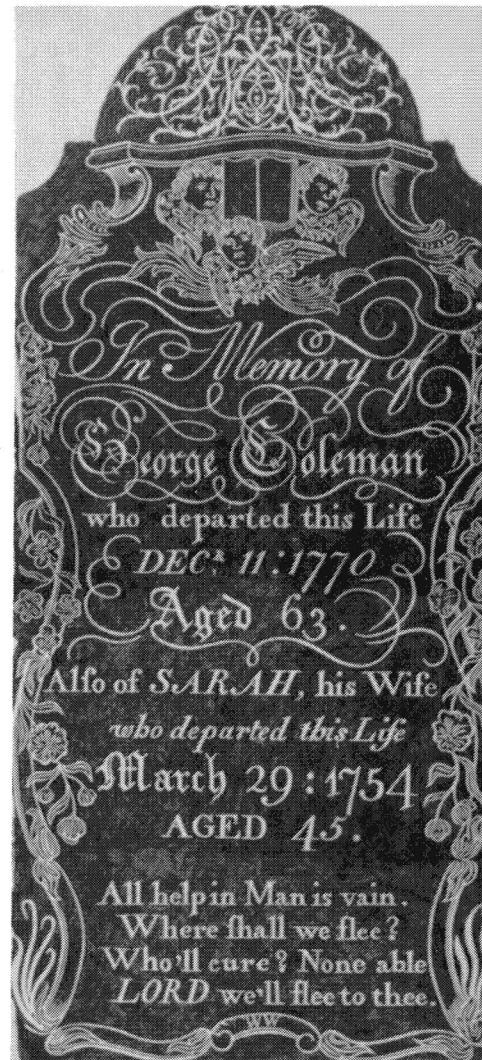 In Memory of
George Coleman
who departed this Life
DECR. 11 : 1770
Aged 63 .
Alſo of SARAH, his Wife
who departed this Life
March 29 : 1754
AGED 45 .
All help in Man is vain .
Where ſhall we flee?
Who'll cure? None able
LORD we'll flee to thee.
WW